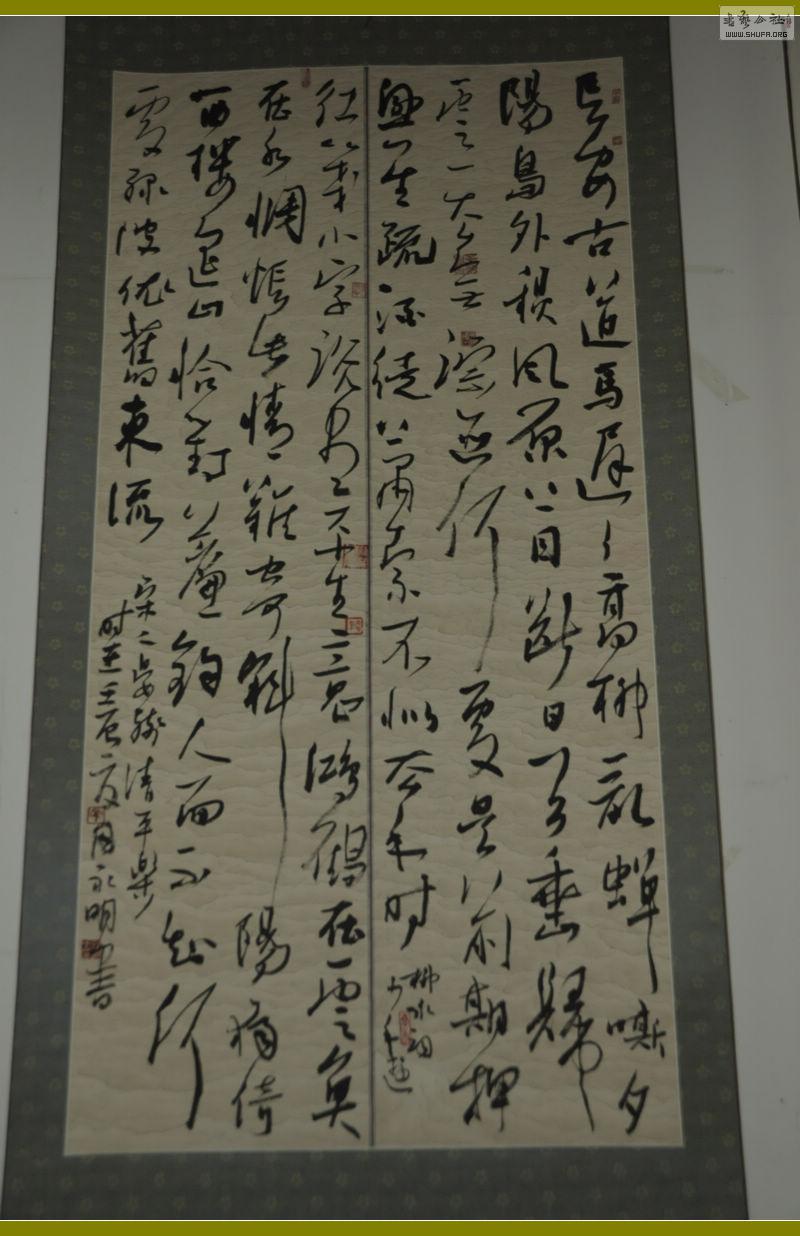 長安古道馬遲遲高柳亂蟬嘶夕
陽島外秋風原上目斷四天垂歸
雲一去無蹤迹何處是前期狎
興生疏酒徒蕭索不似去年時
柳永詞
少年遊
紅箋小字說盡平生意鴻雁在雲魚
在水惆悵此情難寄斜陽獨倚
西樓遙山恰對簾鉤人面不知何
處綠波依舊東流
宋晏殊清平樂
时在壬辰夏月永明书
WWW.SHUFA.ORG